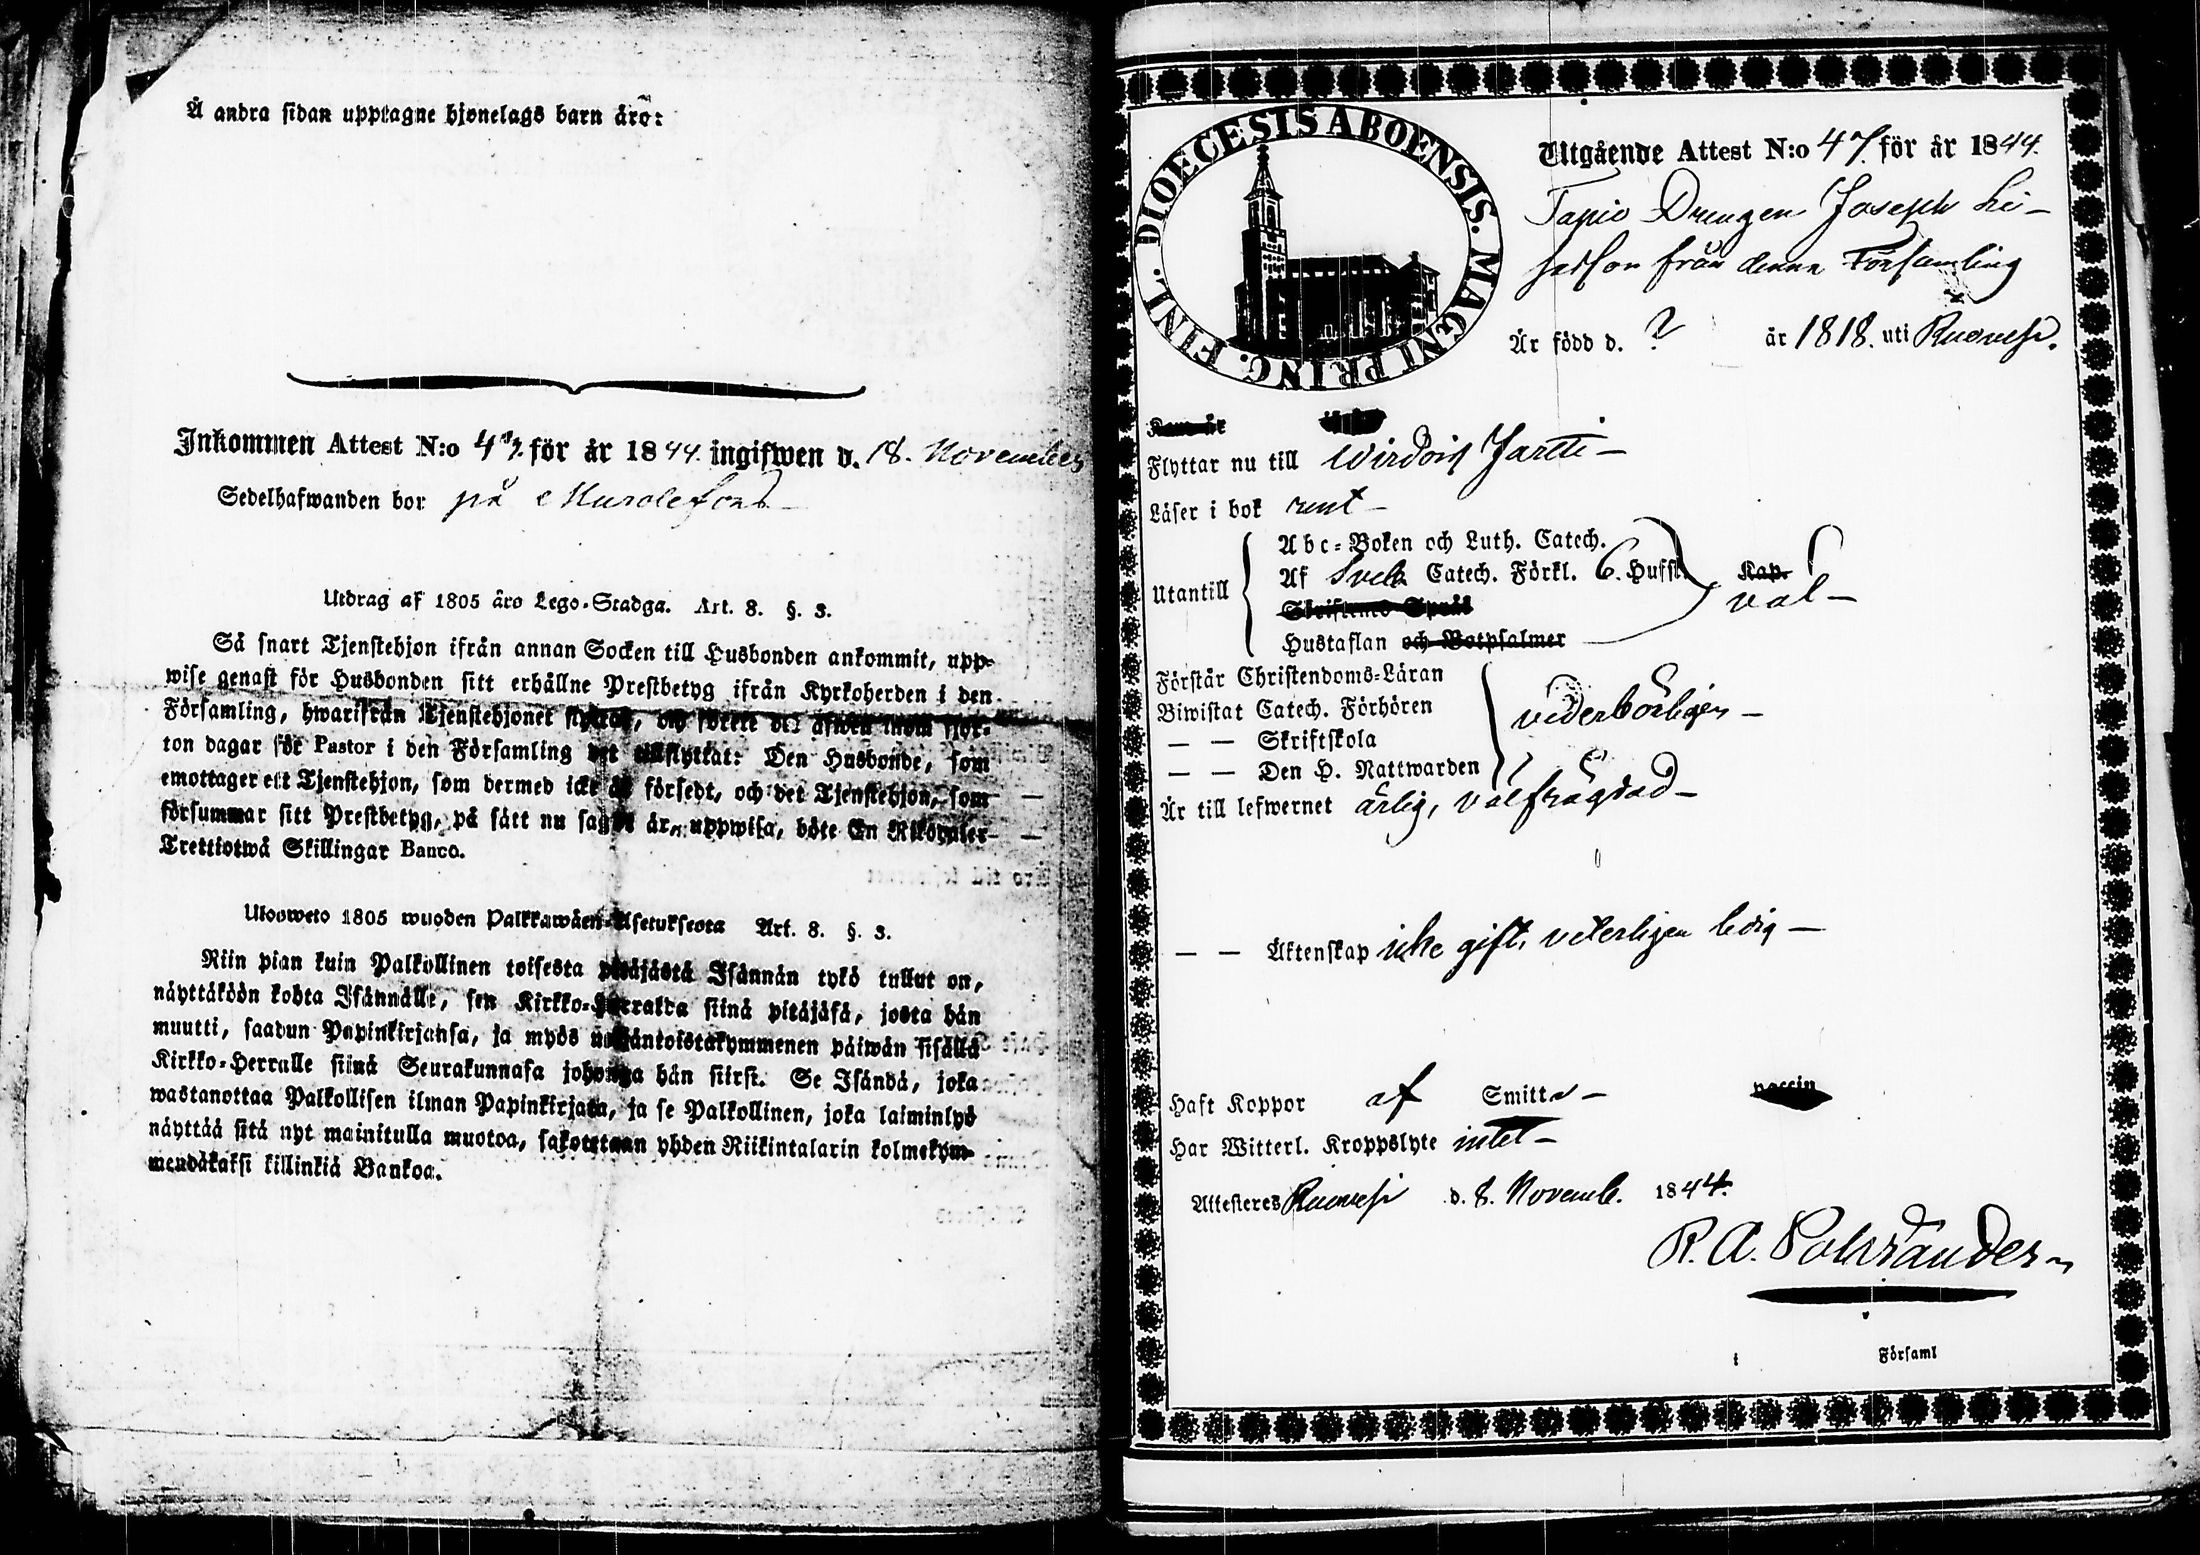 Å andra sidan upptagne hjonelags barn äro:
Inkommen Attest N:o 47. för år 1844. ingifwen d. 18. November
Sedelhafwanden bor på
Utdrag af 1805 åro Lego-Stadga. Art. 8. §. 3.
Så snart Tjenstehjon ifrån annan Socken till Husbonden ankommit, upp-
wise genast för Husbonden sitt erhållne Prestbetyg ifrån Kyrkoherden i den
Församling, hwarifrån Tjenstehjonet flyttat, och förete det äfwen inom fjor-
ton dagar för Pastor i den Församling det tillflyttat: Den Husbonde, som
emottager ett Tjenstehjon, som dermed icke är försedt, och det Tjenstehjon, som
försummar sitt Prestbetyg, på sätt nu sagdt är, uppwisa, böte En Riksdaler
Trettiotwå Skillingar Banco.
Uloosweto 1805 wuoden Palkkawäen-Asetuksesta Art. 8. §. 3.
Niin pian kuin Palkollinen toisesta pitäjästä Isännän tykö tullut on,
näyttäköön kohta Isännälle, sen Kirkko-Herralda siinä pitäjäsä, josta hän
muutti, saadun Papinkirjansa, ja myös neljäntoistakymmenen päiwän sisällä
Kirkko-Herralle siinä Seurakunnasa johonga hän siirsi. Se Isändä, joka
wastanottaa Palkollisen ilman Papinkirjata, ja se Palkollinen, joka laiminlyö
näyttää sitä nyt mainitulla muotoa, sakotetaan yhden Riikintalarin kolmekym-
mendäkaksi killinkiä Bankoa.
DIOECESIS ABOENSIS. MAGNI PRINC. FINL.
Utgående Attest N:o 47. för år 1844.
Drengen Joseph Li-
sasson från denna Församling
Är född d. ? år 1818. uti Ruovesi.
Flyttar nu till Wirdois
Läser i bok rent –
Abc-Boken och Luth. Catech.
Af Sveb. Catech. Förkl. 6. Hufst. Kap.
Utantill
väl –
Skriftenes Språk
Hustaflan och Botpsalmer
Förstår Christendoms-Läran
Biwistat Catech. Förhören vederbörligen –
— — Skriftskola
— — Den H. Nattwarden
Är till lefwernet ärlig, välfrägdad –
— — Äktenskap icke gift, veterligen ledig –
Haft Koppor af Smitta – vaccin
Har Witterl. Kroppslyte intet –
Attesteres Ruovesi d. 8. Novemb. 1844.
R. A. Polviander
i Församl